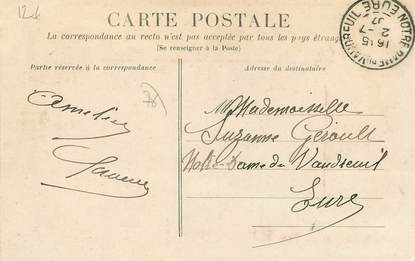 12 ch
CARTE POSTALE
La correspondance au recto n'est pas acceptée par tous les pays étrang
(Se renseigner à la Poste)
NOTRE DAME DU VAUDREUIL
EURE
16 15
2-7
07
Partie réservée à la correspondance
Adresse du destinataire
Mademoiselle
Suzanne Géroult
Notre-Dame de Vaudreuil
Eure